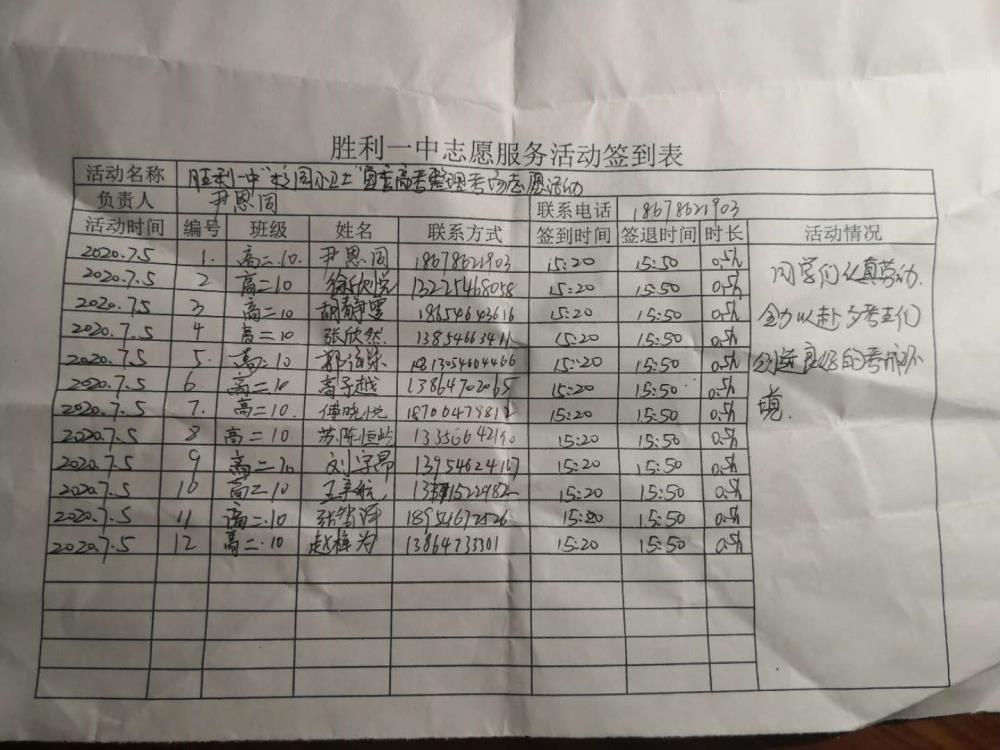 胜利一中志愿服务活动签到表
活动名称 胜利一中"校园小卫士"夏季高考整理考场志愿活动
负责人 尹思同 联系电话 18678621903
活动时间 编号 班级 姓名 联系方式 签到时间 签退时间 时长 活动情况
2020.7.5 1. 高二.10. 尹思同 18678621903 15:20 15:50 0.5h
2020.7.5 2 高二10 徐欣悦 13225468058 15:20 15:50 0.5h
2020.7.5 3 高二10 胡静雯 18654643616 15:20 15:50 0.5h
2020.7.5 4 高二10 张欣然 15:20 15:50 0.5h
2020.7.5 5. 高二10 15:20 15:50 0.5h
2020.7.5 6. 高二10 高子越 13864702065 15:20 15:50 0.5h
2020.7.5 7. 高二10. 傅晓悦 18706479812 15:20 15:50 0.5h
2020.7.5 8 高二10. 苏陈恒屹 15:20 15:50 0.5h
2020.7.5 9 高二10 刘宇昂 13954624167 15:20 15:50 0.5h
2020.7.5 10 高二10 15:20 15:50 0.5h
2020.7.5 11 高二.10 15:20 15:50 0.5h
2020.7.5 12 高二.10 赵梓为 13864733301 15:20 15:50 0.5h
同学们认真劳动.
全力以赴为考生们
创造良好的考前环
境.